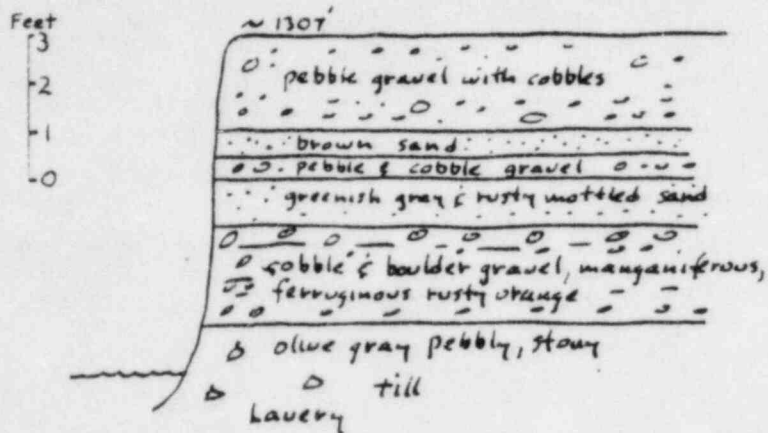 Feet
3
2
1
0
~ 1307'
pebble gravel with cobbles
brown sand
pebble & cobble gravel
greenish gray & rusty mottled sand
cobble & boulder gravel, manganiferous,
ferruginous rusty orange
olive gray pebbly, stony
till
Lavery